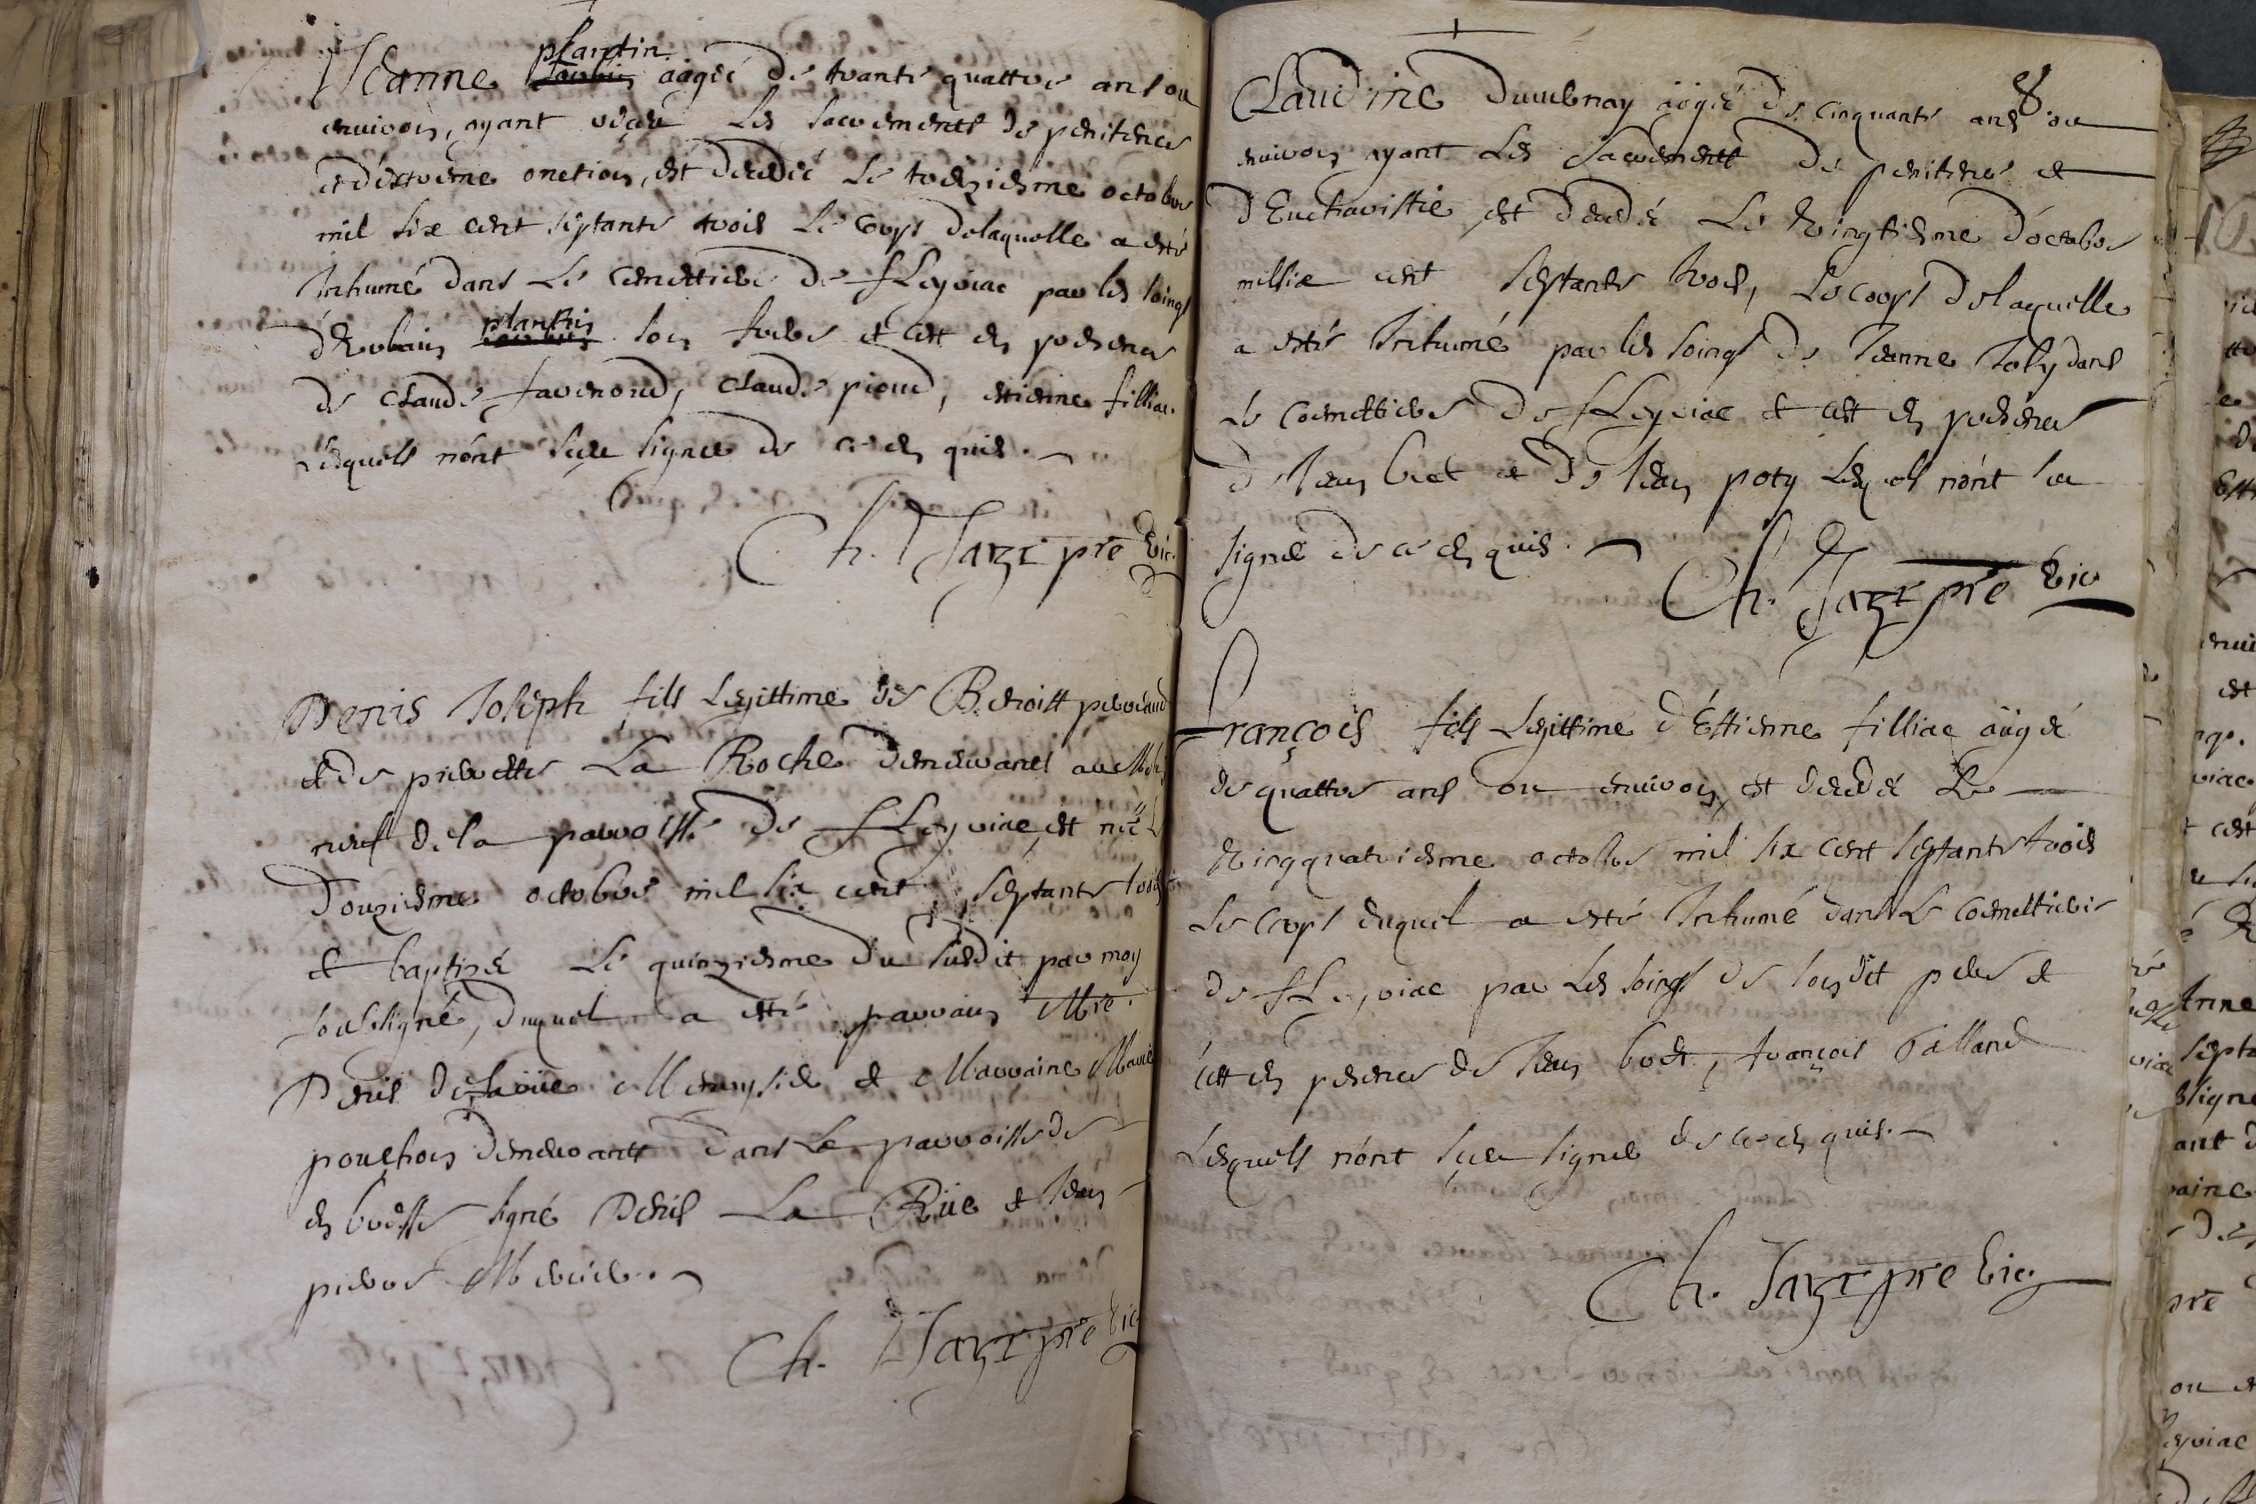 plantin
Jeanne aagée de trante quattre ans ou
environ, ayant reçeu les sacrements de penitence
et d'extreme onction, est decedée le treziesme octobre
mil six cent septante trois le corps de laquelle a esté
Inhumé dans le cemettiere de fLeyriac par les soings
plantin
d'Urbain son frere et cett en presence
de claude favenoud, claude pioud, estienne filliac
lesquells n'ont sçeu signer de ce en quis.
Ch. Jarze pre vic.
Denis Joseph fils legittime de Benoist
et de pierrette La Roche demeurants au
neuf de la parroisse de fLeyriac, est né le
Douziesme octobre mil six cent septante trois
et baptizé le quinziesme du susdit par moy
soussigné, duquel a esté parrain Mre.
Denis Delarüe et Marraine Marie
ponchon demeurants dans le parroisse de
en bresse signé Denis La Rüe et Jean
pierre Mercier.
Ch. Jarze pre vic
8.
Claudine Duvernay aagée de cinquante ans ou
environ ayant les sacrements de penitence et
d'Euchavistie est decedée le vingtiesme d'octobre
mil six cent septante trois, le corps de laquelle
a esté Inhumé par les soings de Jeanne Joly dans
le coemettiere de fLeyriac et cett en presence
de Jean bret et de Jean poty lesquels n'ont sceu
signer de ce en quis.
Ch. Jarze pre vic
françois fils legittime d'Estienne filliac aagé
de quattre ans ou environ, est decedé le
vingquatriesme octobre mil six cent septante trois
le corps duquel a esté Inhumé dans le coemettiere
de fLeyriac par les soings de sondit pere et
cett en presence de Jean bret, françois Galland
lesquells n'ont sçeu signer de ce en quis.
Ch. Jarze pre vic